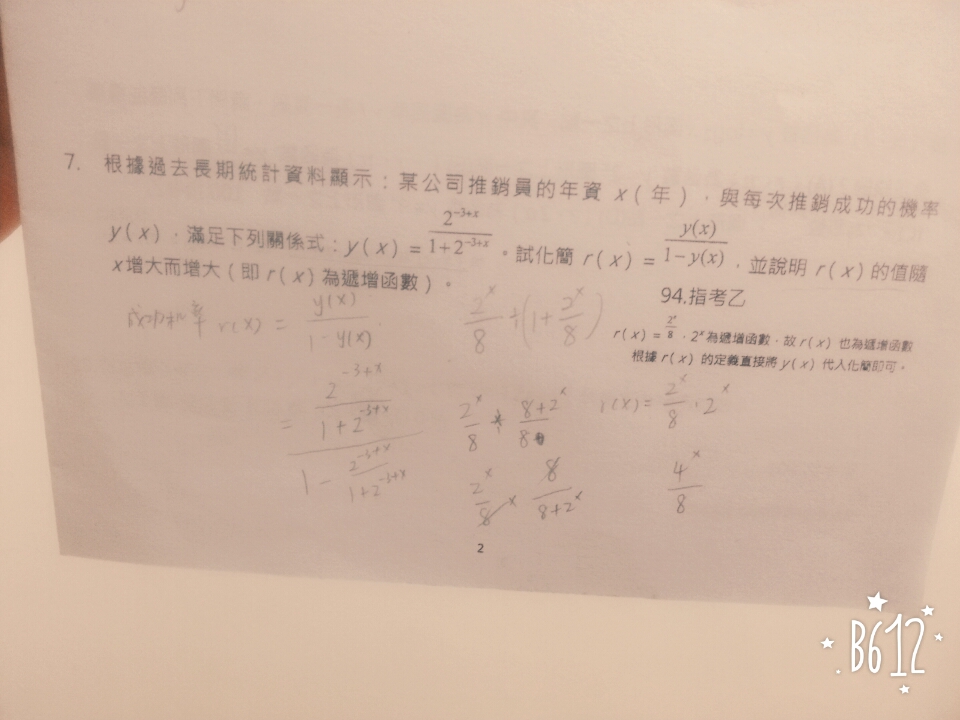 7. 根據過去長期統計資料顯示：某公司推銷員的年資 x（年），與每次推銷成功的機率
y(x)，滿足下列關係式：y(x) = \frac{2^{-3+x}}{1+2^{-3+x}}。試化簡 r(x) = \frac{y(x)}{1-y(x)}，並說明 r(x) 的值隨
x 增大而增大（即 r(x) 為遞增函數）。
94.指考乙
r(x) = \frac{2^x}{8}，2^x 為遞增函數，故 r(x) 也為遞增函數
根據 r(x) 的定義直接將 y(x) 代入化簡即可。
成功機率 r(x) = \frac{y(x)}{1-y(x)}.
= \frac{\frac{2^{-3+x}}{1+2^{-3+x}}}{1-\frac{2^{-3+x}}{1+2^{-3+x}}}
\frac{2^x}{8} ÷ (1+\frac{2^x}{8})
\frac{2^x}{8} ÷ \frac{8+2^x}{8}
\frac{2^x}{8} × \frac{8}{8+2^x}
r(x) = \frac{2^x}{8} · 2^x
\frac{4^x}{8}
2
B612